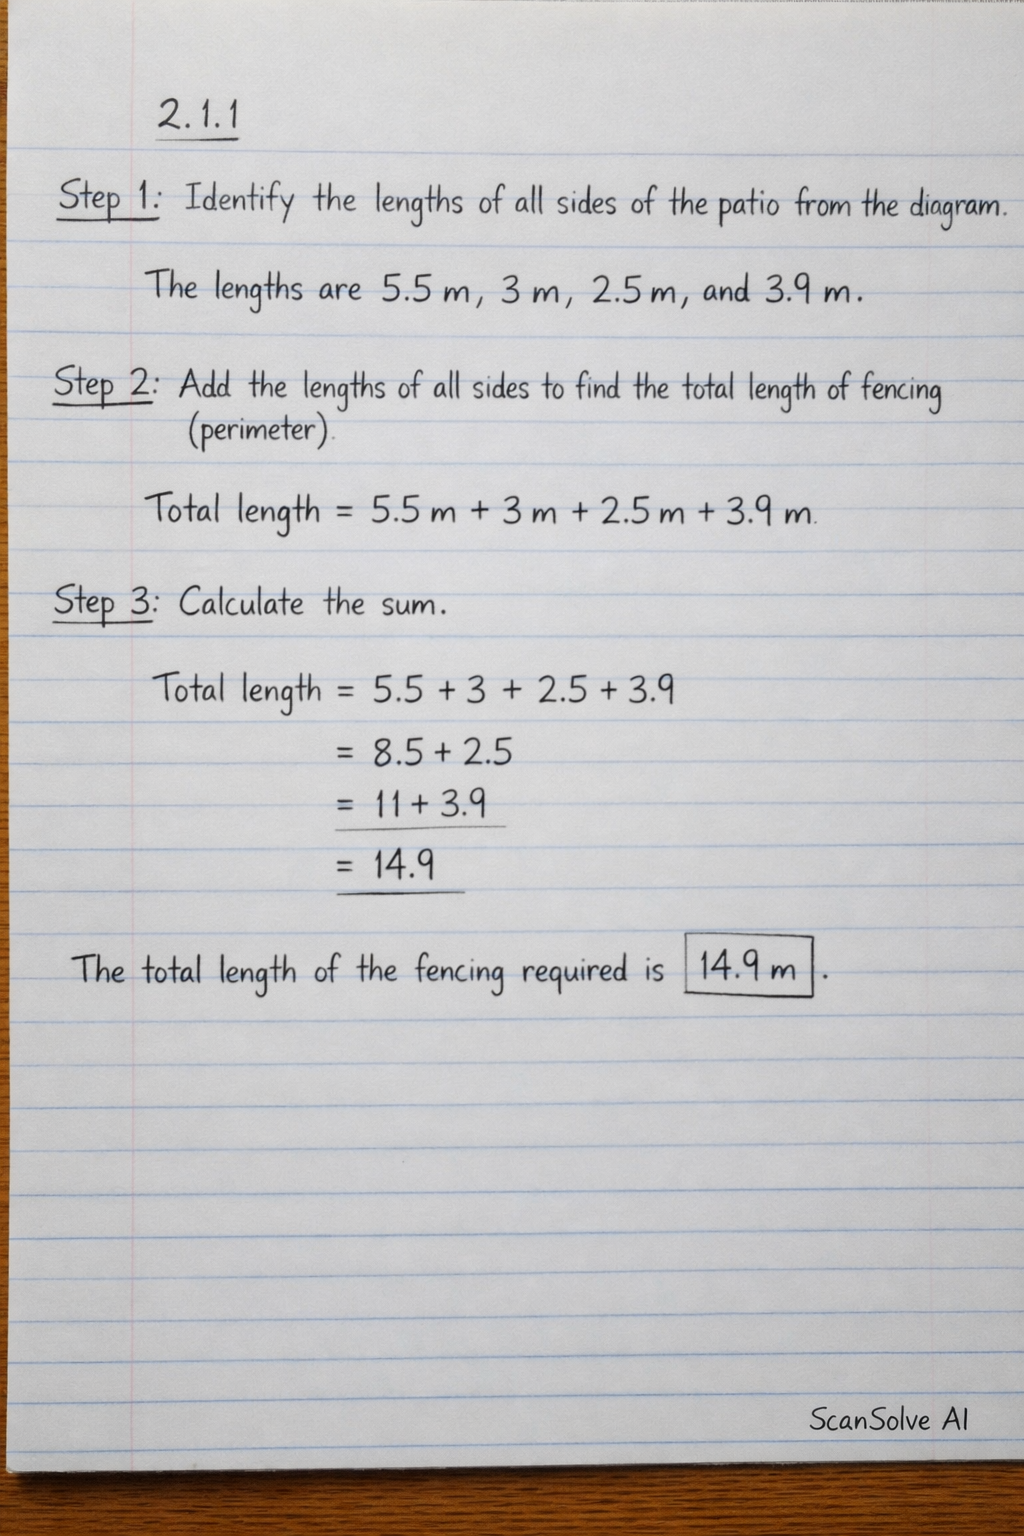 2.1.1
Step 1: Identify the lengths of all sides of the patio from the diagram.
The lengths are 5.5 m, 3 m, 2.5 m, and 3.9 m.
Step 2: Add the lengths of all sides to find the total length of fencing
(perimeter).
Total length = 5.5 m + 3 m + 2.5 m + 3.9 m.
Step 3: Calculate the sum.
Total length = 5.5 + 3 + 2.5 + 3.9
= 8.5 + 2.5
= 11 + 3.9
= 14.9
The total length of the fencing required is 14.9 m.
ScanSolve AI